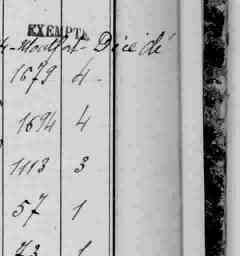 EXEMPTÉ
Montfort - Décédé
1679 4 -
1694 4
1113 3
57 1
73 1